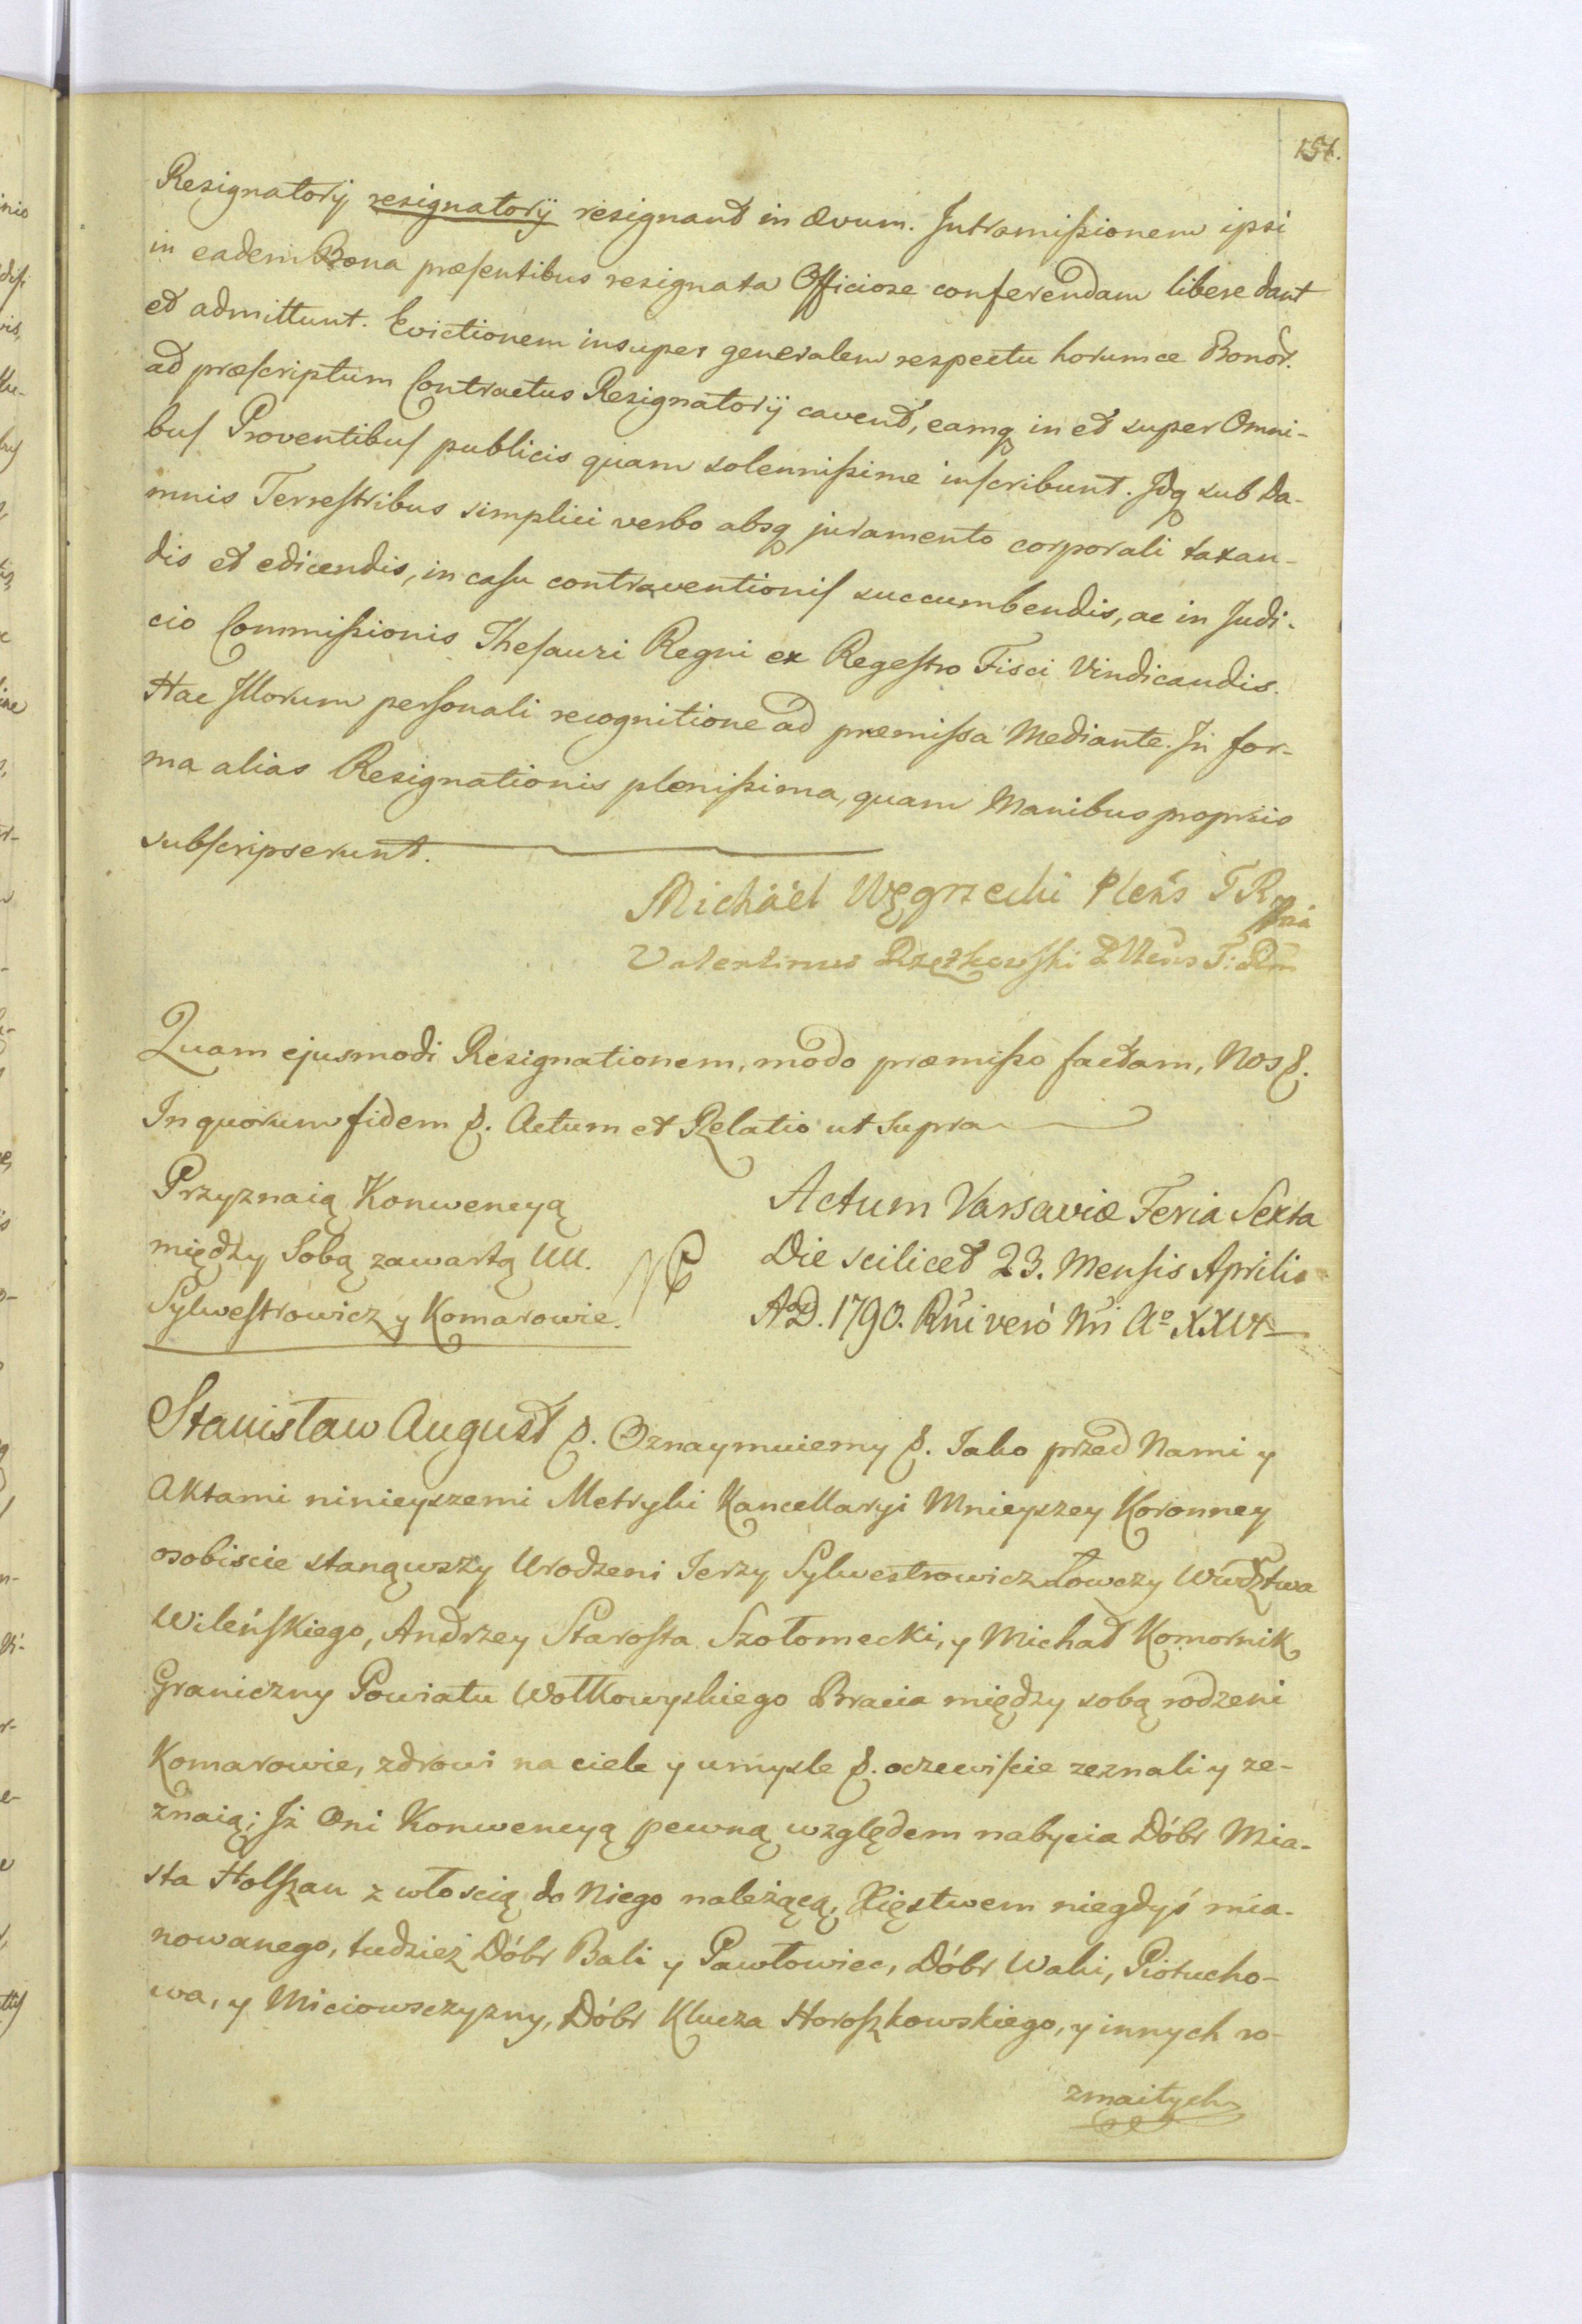 151.
Resignatorij resignatorij resignant in ævum. Intromißionem ipsi
in eadem Bona præsentibus resignata Officiose conferendam libere dant
et admittunt. Evictionem insuper generalem respectu horumce Bonor.
ad præscriptum Contractus Resignatorij cavent, eamq in et super Omni-
bus Proventibus publicis quam solennißime inscribunt. Idq sub Da-
mnis Terrestribus simplici verbo absq juramento corporali taxan-
dis et edicendis, in casu contraventionis succumbendis, ac in Judi-
cio Commißionis Thesauri Regni ex Regestro Fisci Vindicandis.
Hac Illorum personali recognitione ad præmißa Mediante. In for-
ma alias Resignationis plenißima, quam Manibus proprijs
subscripserunt.
Michäel Węgrzecki Plens T R
Valentinus Rzęzkowski
Quam ejusmodi Resignationem, modo præmißo factam, Nos &.
In quorum fidem &. Actum et Relatio ut supra
Przyznaią Konwencyą
między Sobą zawartą UU.
Sylwestrowicz y Komarowie.
Actum Varsaviæ Feria Sexta
Die scilicet 23. Mensis Aprilis
AD. 1790. Rni verò Nri Aº XXVI
Stanisław August &. Oznaymuiemy &. Iako przed Nami y
Aktami ninieyszemi Metryki Kancellaryi Mnieyszey Koronney
osobiscie stanąwszy Urodzeni Ierzy Sylwestrowicz Łowczy Wwdztwa
Wileńskiego, Andrzey Starosta Szołomecki, y Michał Komornik
Graniczny Powiatu Wołkowyskiego Bracia między sobą rodzeni
Komarowie, zdrowi na ciele y umysle &. oczewiście zeznali y ze-
znaią; Iż Oni Konwencyą pewną względem nabycia Dóbr Mia-
sta Holszan z włoscią do Niego należącą, Xięstwem niegdyś mia-
nowanego, tudzież Dóbr Bali y Pawłowiec, Dóbr Waki, Piotucho-
wa, y Miciowsczyzny, Dóbr Klucza Horoszkowskiego, y innych ro-
zmaitych